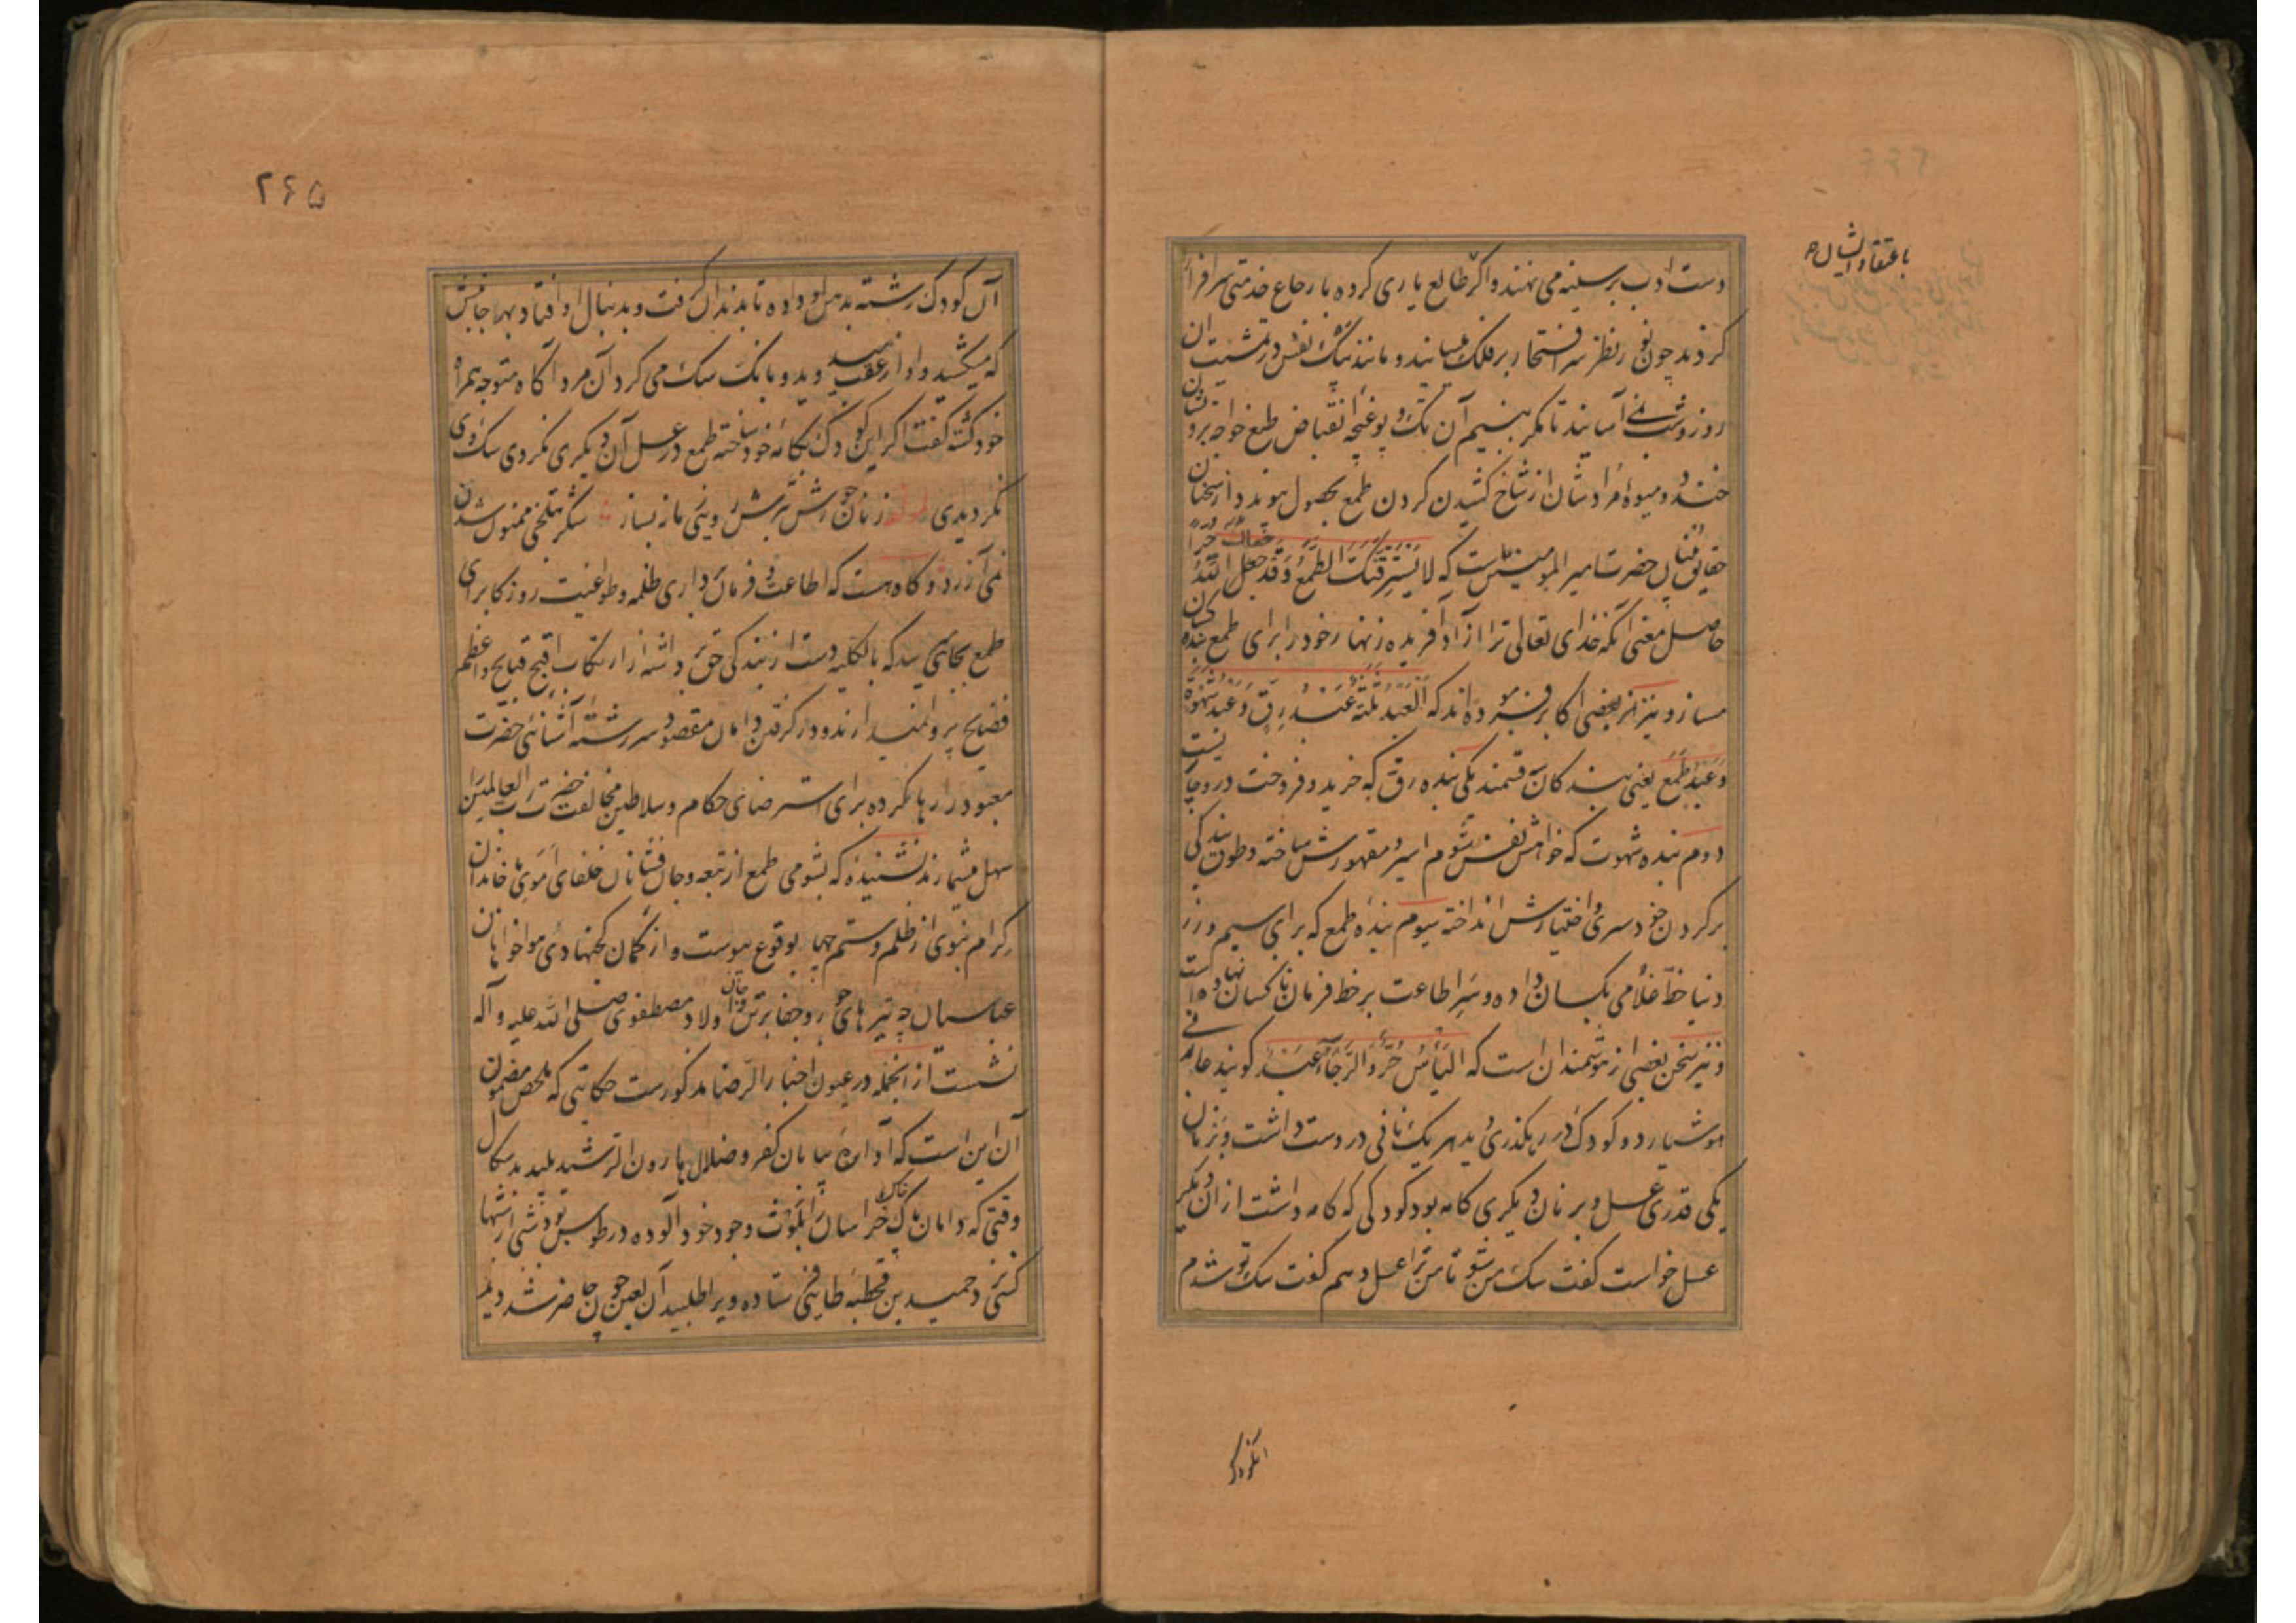 باعتقاد ایشان
دست ادب بر سینه می نهند و اگر طالع یاری کرده بارجاع خدمتی سرافراز
کردند چون نور نظر سر افتخار بر فلک میسایند و مانند سگ نفس در تمشیت آن
روز و شب نمی آسایند تا مگر ببینیم آن تک و پو غنچه انقباض طبع خواجه بروشان
خندد و میوه مرادشان از شاخ کشیدن کردن طمع بحصول پیوندد از سخنان
حقایق بنیان حضرت امیر المومنین است که لا یَسْتَرِقَّنَّکَ الطَّمَعُ وَقَدْ جَعَلَکَ اللّٰهُ حُرّاً
حاصل معنی آنکه خدای تعالی ترا آزاد آفریده زنهار خود را برای طمع بنده کسان
مساز و نیز از بعضی اکابر فرموده اند که اَلْعَبْدُ ثَلٰثَةٌ عَبْدُ رِقٍّ وَعَبْدُ شَهْوَةٍ
وَعَبْدُ طَمَعٍ یعنی بندکان سه قسمند یکی بنده رق که خرید و فروخت درو جاریست
دوم بنده شهوت که خواهش نفس شوم اسیر و مقهورش ساخته و طوق بندکی
بر کردن خودسری و اختیارش انداخته سیوم بنده طمع که برای سیم و زر
دنیا خط غلامی بکسان داده و سر اطاعت بر خط فرمان ناکسان نهاده است
و نیز سخن بعضی از هوشمندان است که الیَأسُ حُرٌّ وَالرَّجَاءُ عَبْدٌ کویند عارفی
هوشیار دو کودک در رهکذری دید هر یک نانی در دست داشت و بر نان
یکی قدری عسل و بر نان دیکری کامه بود کودکی که کامه داشت از آن دیکر
عسل خواست کفت سک من شو تا من ترا عسل دهم کفت سک تو شدم
آنکودک
۲۶۵
آن کودک رشته بدهن او داده تا بدندان کرفت و بدنبال او افتاد بهر جانبش
که میکشید و او از عقب میدوید و بانک سک می کرد آن مرد آکاه متوجه همراه
خود کشته کفت اکر این کودک بکامه خود ساخته طمع در عسل آن دیکری نکردی سک وی
نکردیدی ز نان جو رش ترش روئی ما ز بساز شکر بتلخی ممنون شدن
نمی ارزد و کاه هست که اطاعت و فرمان برداری ظلمه و طواغیت روزکار برای
طمع بجائی میرسد که بالکلیه دست از بندکی حق برداشته از ارتکاب اقبح قبایح و اعظم
فضایح پروا نمیدارند و در کرفتن دامان مقصود سر رشته آشنائی حضرت
معبود را رها کرده برای استرضای حکام و سلاطین مخالفت حضرت رب العالمین
سهل میشمارند نشنیده که بشومی طمع از تبعه و جان فشانان خلفای اموی بخاندان
کرام نبوی از ظلم و ستم چها بوقوع پیوست و از کمان کج نهادی هواخواهان
عباسیان چه تیرهای جور و جفا بر تن و جان اولاد مصطفوی صلی الله علیه و آله
نشست از انجمله در عیون اخبار الرضا مذکورست حکایتی که ملخص مضمون
آن این است که آواره بیابان کفر و ضلال هارون الرشید پلید بدسکال
وقتی که دامان پاک خاک خراسان را بلوث وجود خود آلوده در طوس بود شبی از شبها
کسی نزد حمید بن قحطبه طائی فرستاده ویرا طلبید آن لعین چون حاضر شد دید